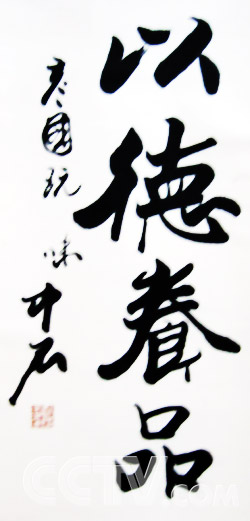 以德養品
彦國玩味
中石
CCTV.com